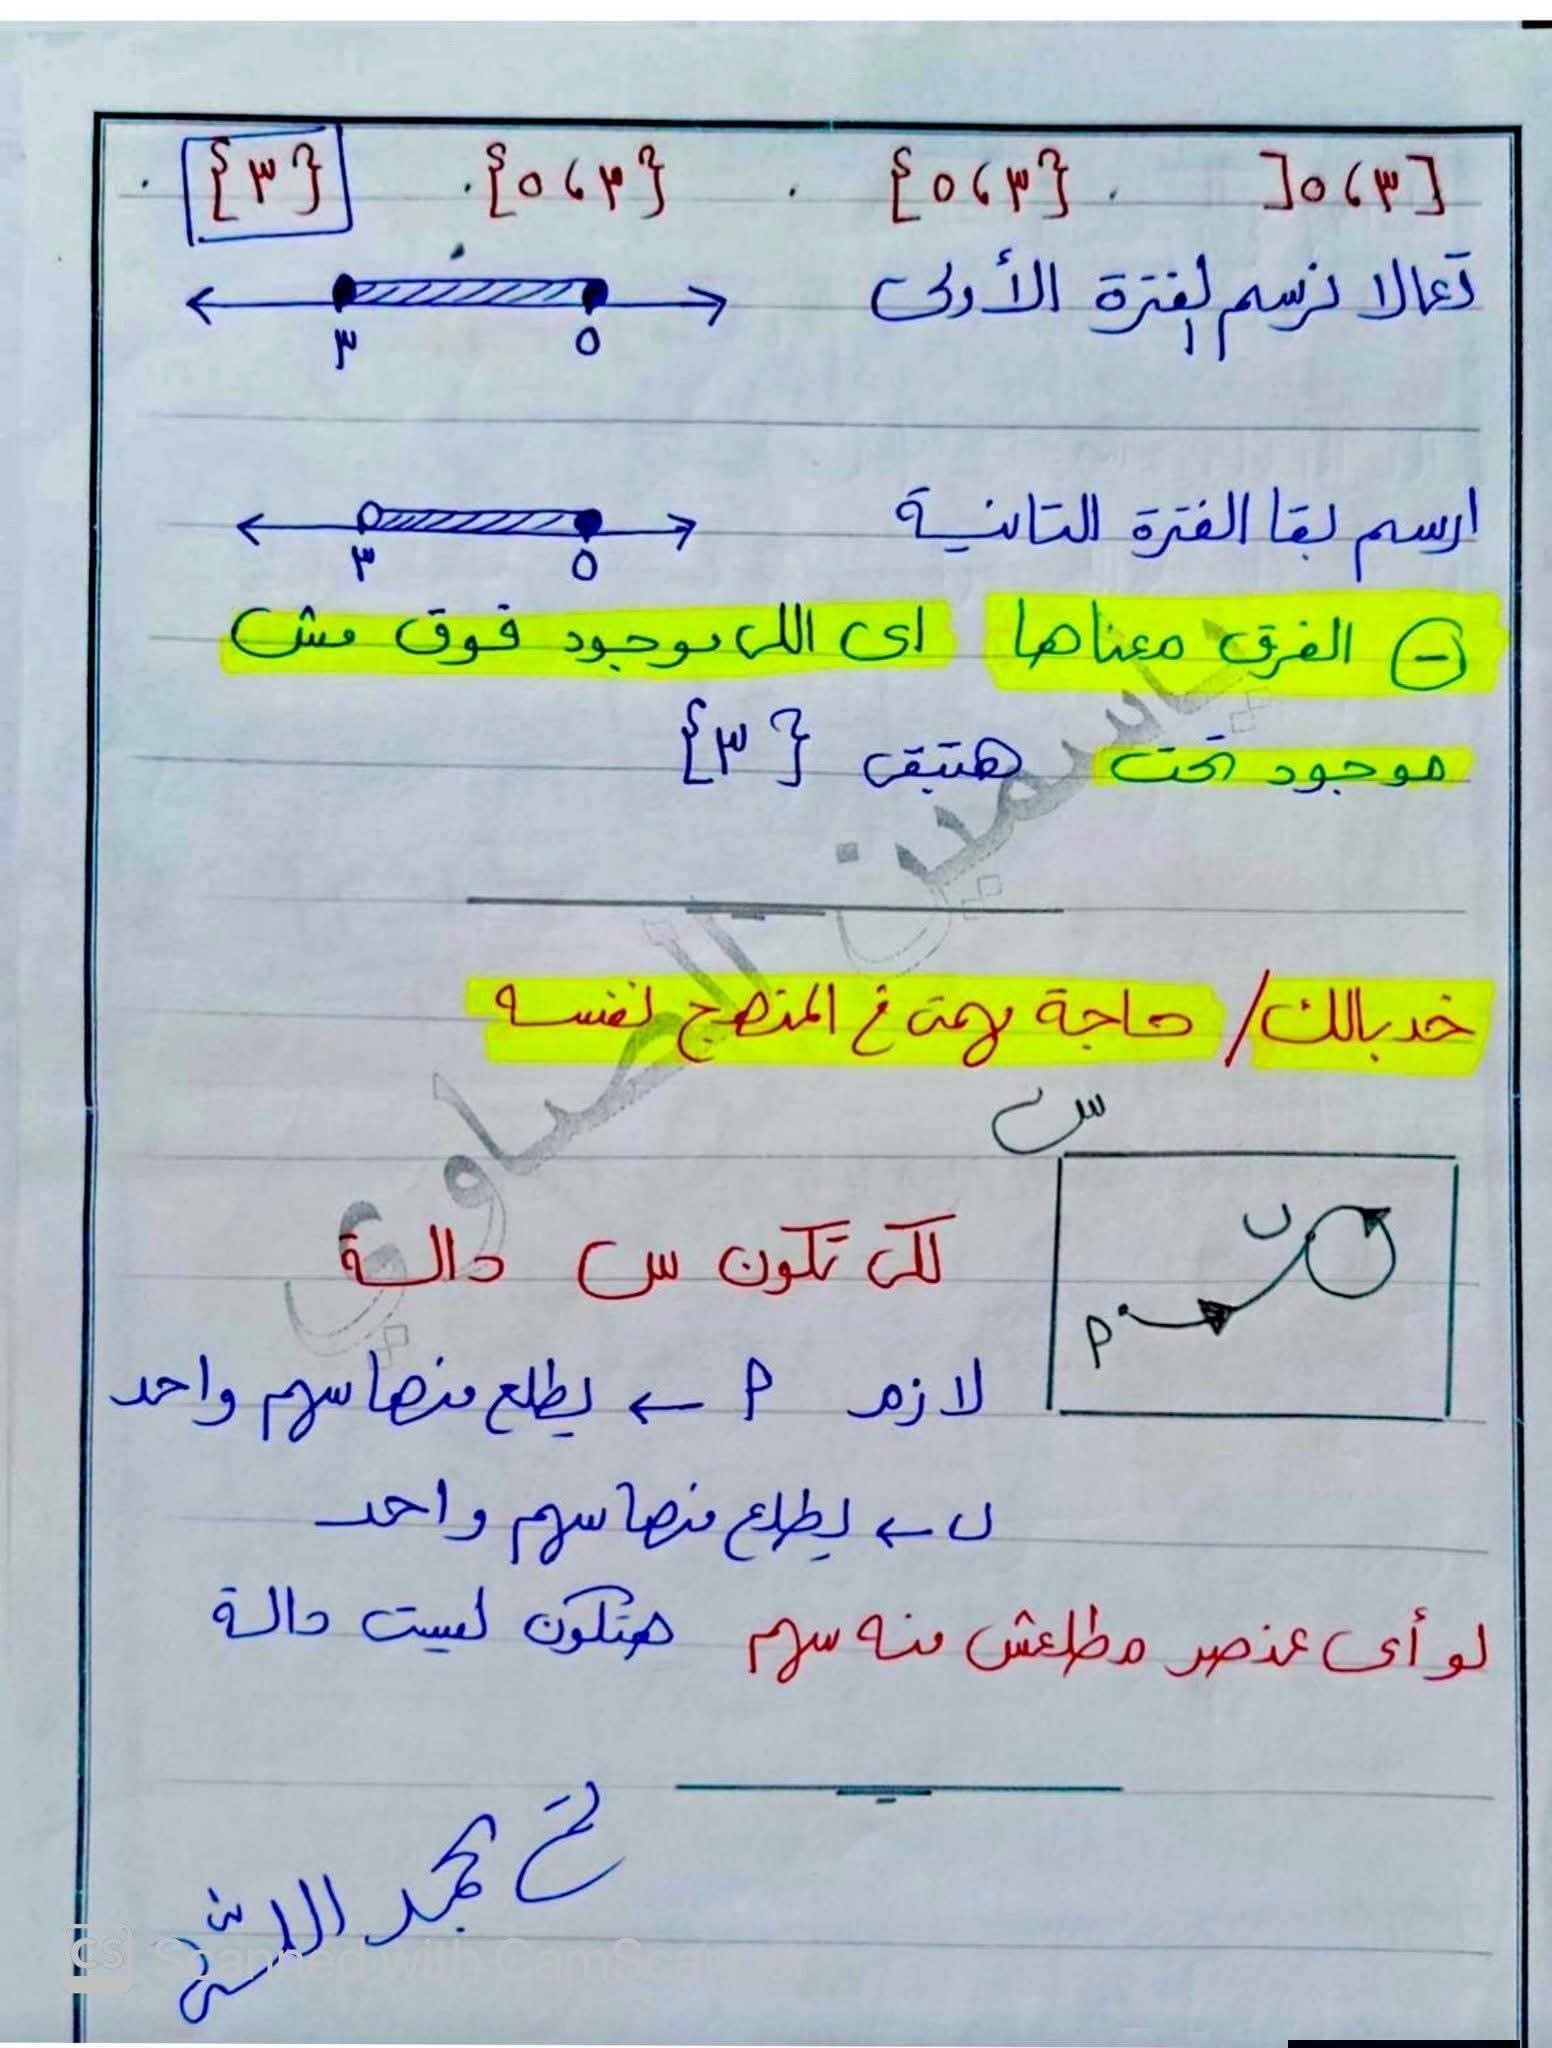 [٣،٥[ . {٣،٥} . {٣،٥} . {٣} .
تعالا نرسم الفترة الأولى
٣ ٥
ارسم بقا الفترة التانية
٣ ٥
- الفرق معناها اى اللى موجود فوق مش
موجود تحت هتبقى {٣}
خد بالك / حاجة مهمة في المنهج نفسه
س
ب
لكى تكون س دالة
م
لازم م ← يطلع منها سهم واحد
ب ← يطلع منها سهم واحد
لو أى عنصر مطلعش منه سهم هتكون ليست دالة
تم بحمد الله
ياسمين الصاوي
CS Scanned with CamScanner